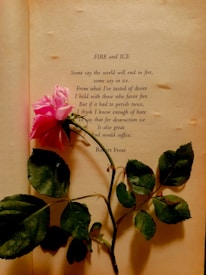 FIRE and ICE
Some say the world will end in fire,
some say in ice.
From what I've tasted of desire
I hold with those who favor fire.
But if it had to perish twice,
I think I know enough of hate
say that for destruction ice
Is also great
would suffice.
Robert Frost